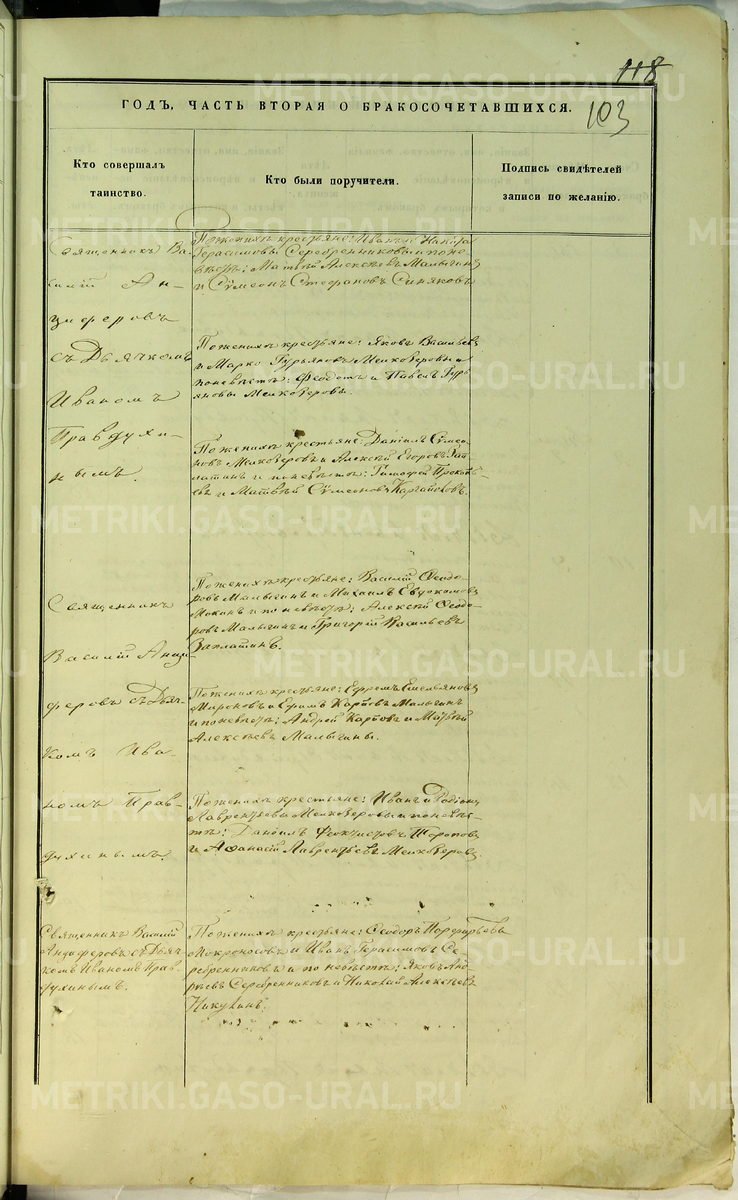 118
103
ГОДЪ, ЧАСТЬ ВТОРАЯ О БРАКОСОЧЕТАВШИХСЯ.
Кто совершалъ
таинство.
Кто были поручители.
Подпись свидѣтелей
записи по желанію.
Священникъ Ва-
силій Ан-
циферовъ
съ Дьячкомъ
Иваномъ
Правдухи-
нымъ.
По женихѣ крестьяне: Иванъ и
Герасимовы Серебренниковы и по не-
вѣстѣ: Матвѣй Алексѣевъ Малыгинъ
и Сѵмеонъ Стефановъ Синяковъ
По женихѣ крестьяне: Яковъ Васильевъ
и Марко Гурьяновъ Мелкозеровы и
по невѣстѣ: Феодотъ и Павелъ Гурь-
яновы Мелкозеровы.
По женихѣ крестьяне: Даніилъ Сѵмео-
новъ Мелкозеровъ и Алексѣй Егоровъ Зап-
латинъ и по невѣстѣ: Тимофей Прокопь-
евъ и Матвѣй Сѵмеоновъ
Священникъ
Василій Анци-
феровъ съ Дьяч-
комъ Ива-
номъ Прав-
духинымъ.
По женихѣ крестьяне: Василій Феодо-
ровъ Малыгинъ и Михаилъ Евдокимовъ
Мокинъ и по невѣстѣ: Алексѣй Феодо-
ровъ Малыгинъ и Григорій Васильевъ
Заплатинъ.
По женихѣ крестьяне: Ефремъ Емельяновъ
Мироновъ и Ефимъ Карповъ Малыгинъ
и по невѣстѣ: Андрей Карповъ и Матвѣй
Алексѣевъ Малыгины.
По женихѣ крестьяне: Иванъ и Родіонъ
Лаврентьевы Мелкозеровы и по невѣс-
тѣ: Даніилъ Феоктистовъ Шороповъ
и Афанасій Лаврентьевъ Мелкозеровъ.
Священникъ Василій
Анциферовъ съ Дьяч-
комъ Иваномъ Прав-
духинымъ.
По женихѣ крестьяне: Феодоръ Порфирьевъ
Мокроносовъ и Иванъ Герасимовъ Се-
ребренниковъ и по невѣстѣ: Яковъ Анд-
реевъ Серебренниковъ и Николай Алексѣевъ
Никулинъ.
METRIKI.GASO-URAL.RU
METRIKI.GASO-URAL.RU
METRIKI.GASO-URAL.RU
METRIKI.GASO-URAL.RU
METRIKI.GASO-URAL.RU
METRIKI.GASO-URAL.RU
METRIKI.GASO-URAL.RU
METRIKI.GASO-URAL.RU